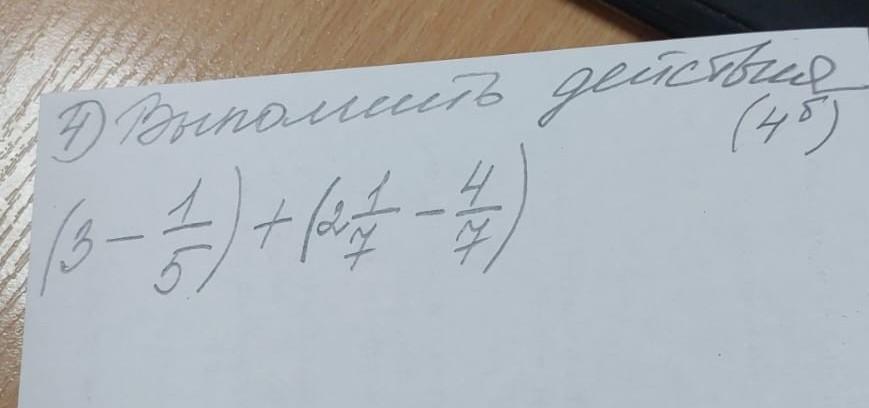 4) Выполнить действия
(4б)
(3 - 1/5) + (2 1/7 - 4/7)